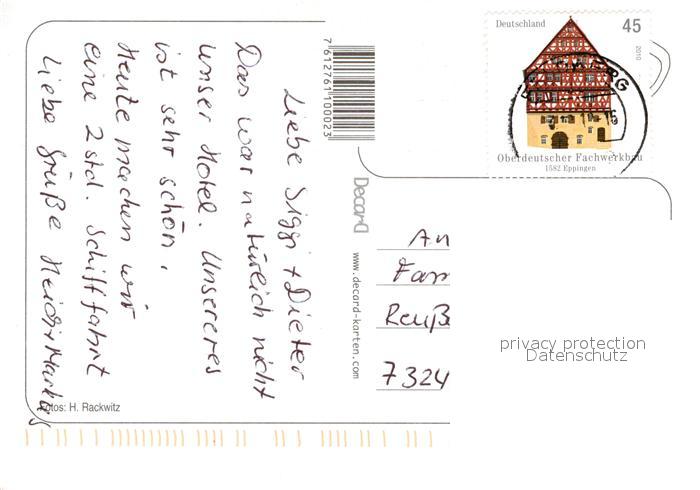 Liebe Siggi + Dieter
Das war natürlich nicht
unser Hotel. Unsereres
ist sehr schön.
Heute machen wir
eine 2 std. Schifffahrt
Liebe Grüße Heidi + Markus
Fotos: H. Rackwitz
7612761100023
Decard
www.decard-karten.com
Deutschland
45
2010
Oberdeutscher Fachwerkbau
1582 Eppingen
An
Fam
Reuß
7324
privacy protection
Datenschutz